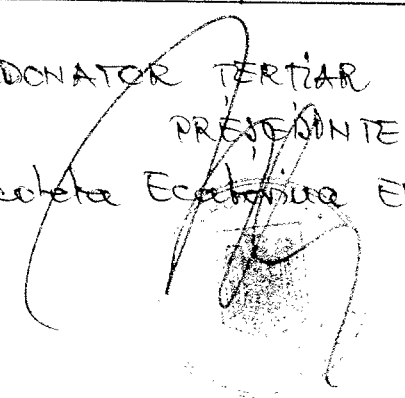 DONATOR TERTIAR
PREȘEDINTE
Ecaterina E